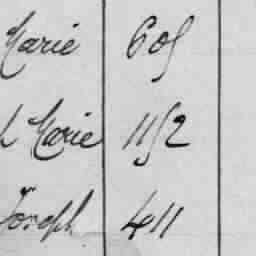 Marie 605
Marie 1152
Joseph 411